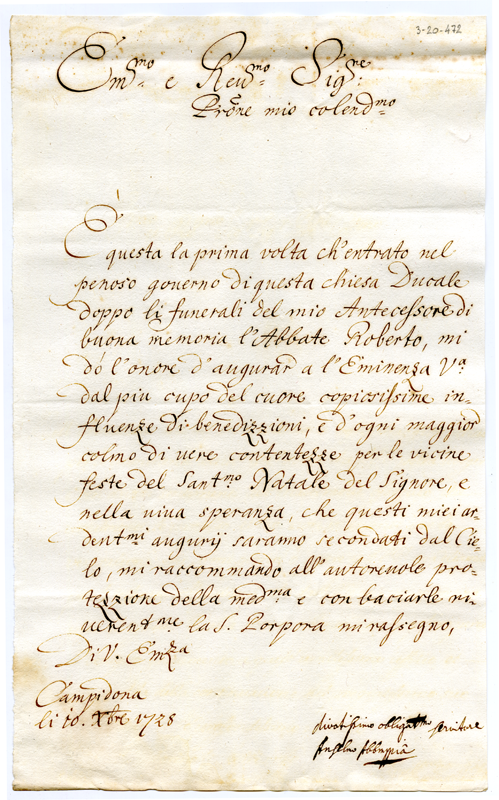 3-20-472
Em.mo e Rev.mo Sig.re
Prõne mio colend.mo
È questa la prima volta ch'entrato nel
penoso governo di questa chiesa Ducale
doppo li funerali del mio Antecessore di
buona memoria l'Abbate Roberto, mi
dó l'onore d'augurar a l'Eminenza V.a
dal piu cupo del cuore copiosissime in-
fluenze di benedizzioni, e d'ogni maggior
colmo di vere contentezze per le vicine
feste del Sant.mo Natale del Signore, e
nella viva speranza, che questi miei ar-
dent.mi augurij saranno secondati dal Cie-
lo, mi raccommando all'autorevole pro-
tezzione della med.ma e con baciarle ri-
veren.t.me la S. Porpora mi rassegno,
Di V. Em.za
Campidona
li 10. Xbre 1728
divotissimo obligat.mo servitore
Anselmo